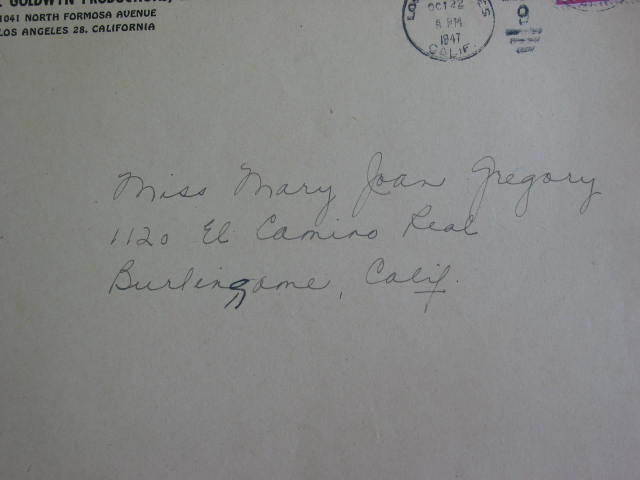 GOLDWYN PRODUCTIONS,
1041 NORTH FORMOSA AVENUE
LOS ANGELES 28, CALIFORNIA
LOS
OCT 22
8 PM
1947
CALIF.
Miss Mary Joan Gregory
1120 El Camino Real
Burlingame, Calif.